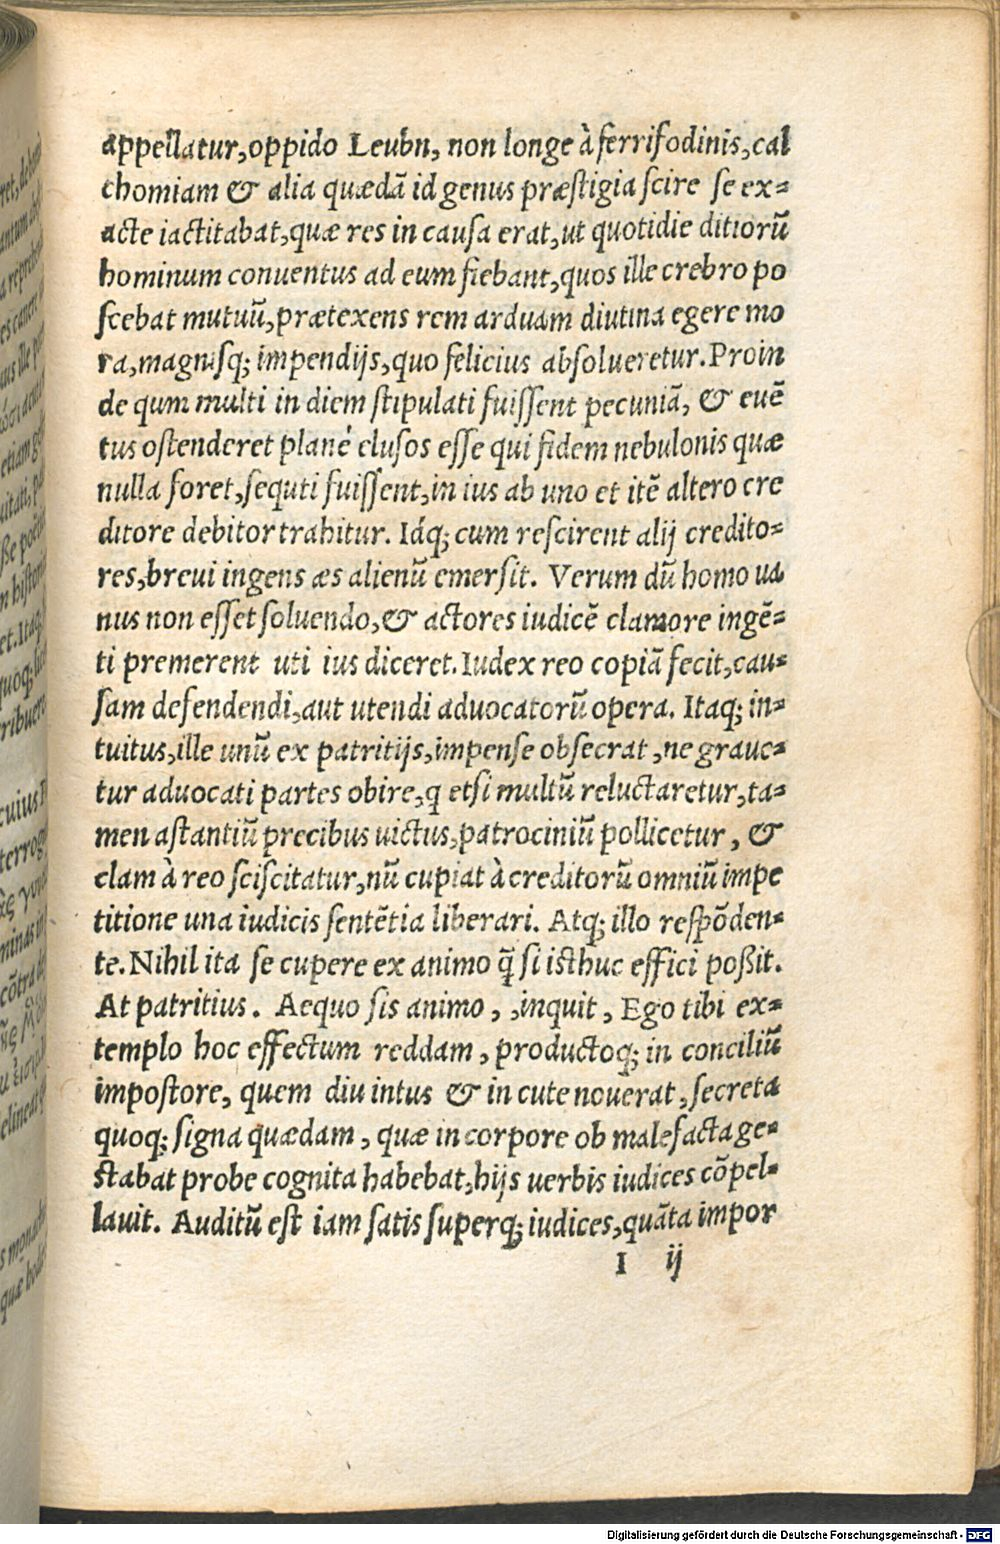 appellatur, oppido Leubn, non longe à ferrifodinis, cal
chomiam & alia quædā id genus præstigia scire se ex=
acte iactitabat, quæ res in causa erat, ut quotidie ditiorū
hominum conuentus ad eum fiebant, quos ille crebro po
scebat mutuū, prætexens rem arduam diutina egere mo
ra, magnisq; impendijs, quo felicius absolueretur. Proin
de qum multi in diem stipulati fuissent pecuniā, & euē
tus ostenderet plané elusos esse qui fidem nebulonis quæ
nulla foret, sequti fuissent, in ius ab uno et itē altero cre
ditore debitor trahitur. Idq; cum rescirent alij credito=
res, breui ingens æs alienū emersit. Verum dū homo ua
nus non esset soluendo, & actores iudicē clamore ingē=
ti premerent uti ius diceret. Iudex reo copiā fecit, cau=
sam defendendi, aut utendi aduocatorū opera. Itaq; in=
tuitus, ille unū ex patritijs, impense obsecrat, ne graue=
tur aduocati partes obire, q etsi multū reluctaretur, ta=
men astantiū precibus uictus, patrociniū pollicetur, &
clam à reo sciscitatur, nū cupiat à creditorū omniū impe
titione una iudicis sentētia liberari. Atq; illo respōden=
te. Nihil ita se cupere ex animo q̄ si isthuc effici poßit.
At patritius. Aequo sis animo, ,inquit, Ego tibi ex=
templo hoc effectum reddam, productoq; in conciliū
impostore, quem diu intus & in cute nouerat, secreta
quoq; signa quædam, quæ in corpore ob malefacta ge=
stabat probe cognita habebat, hijs uerbis iudices cōpel=
lauit. Auditū est iam satis superq; iudices, quāta impor
I ij
ret,
etiam
uitati,
ße
et. Itaq;
quoq;
cuius
terrog
quæ
Digitalisierung gefördert durch die Deutsche Forschungsgemeinschaft - DFG